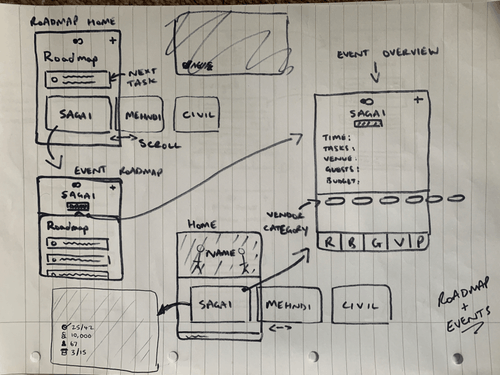 ROADMAP HOME
+
Roadmap
NEXT
TASK
SAGAI
MEHNDI
CIVIL
SCROLL
EVENT ROADMAP
+
SAGAI
Roadmap
EVENT OVERVIEW
+
SAGAI
TIME:
TASKS:
VENUE:
GUESTS:
BUDGET:
VENDOR
CATEGORY
R B G V P
HOME
NAME
SAGAI
MEHNDI
CIVIL
25/42
10,000
67
3/15
ROADMAP
+
EVENTS